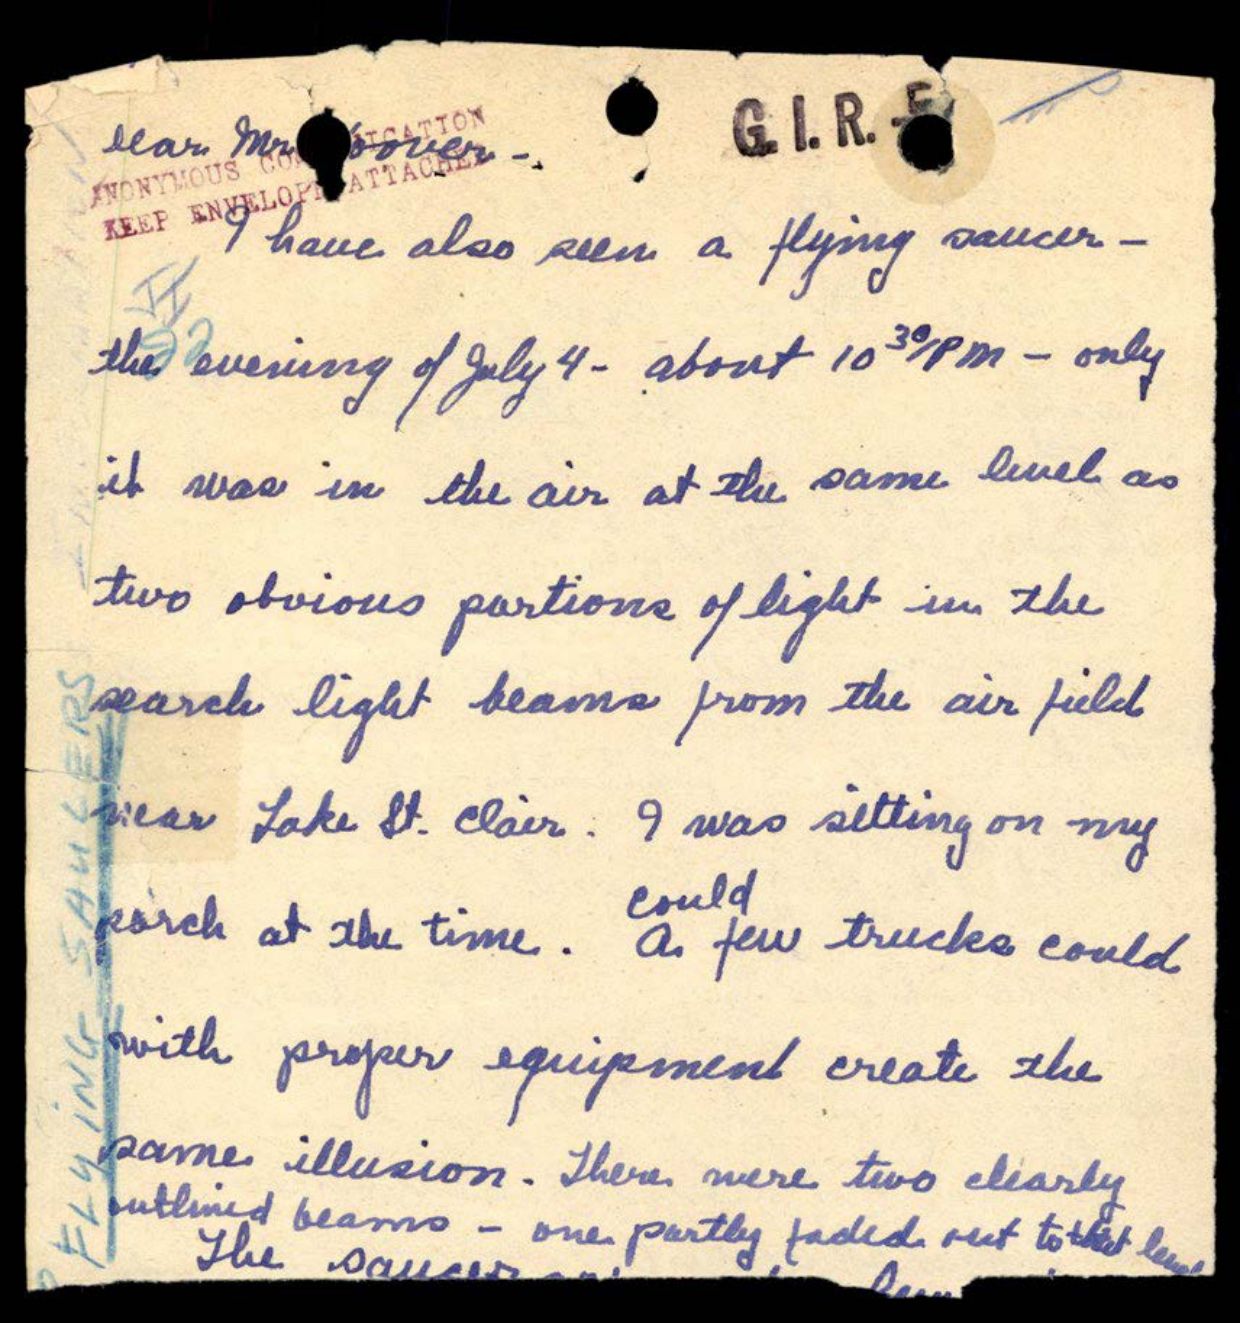 Dear Mr. Hoover -
G. I. R. - 5
ANONYMOUS COMMUNICATION
KEEP ENVELOPE ATTACHED
I have also seen a flying saucer -
the evening of July 4 - about 10 30/PM - only
it was in the air at the same level as
two obvious portions of light in the
search light beams from the air field
near Lake St. Clair. I was sitting on my
porch at the time. A few trucks could
could
with proper equipment create the
same illusion. There were two clearly
outlined beams - one partly faded out to that level
The saucer
FLYING SAUCERS